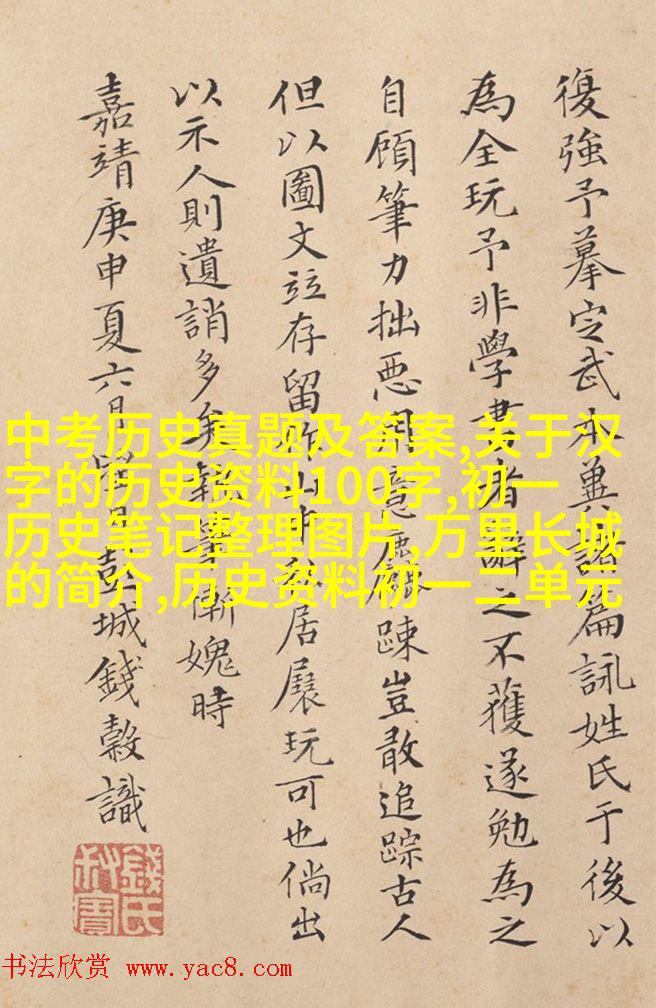 復強予摹定武本諸篇詠姓氏于後以
為全玩予非學書者辭之不獲遂勉為之
自顧筆力拙惡用意麤踈豈敢追踪古人
但以圖文竝存留山中居展玩可也倘出
以示人則遺誚多矣執筆慚媿時
嘉靖庚申夏六月彭城錢穀識
錢氏叔寶
中考历史真题及答案,关于汉
字的历史资料100字,初一
历史笔记整理图片,万里长城
的简介,历史资料初一二单元
书法欣赏 www.yac8.com